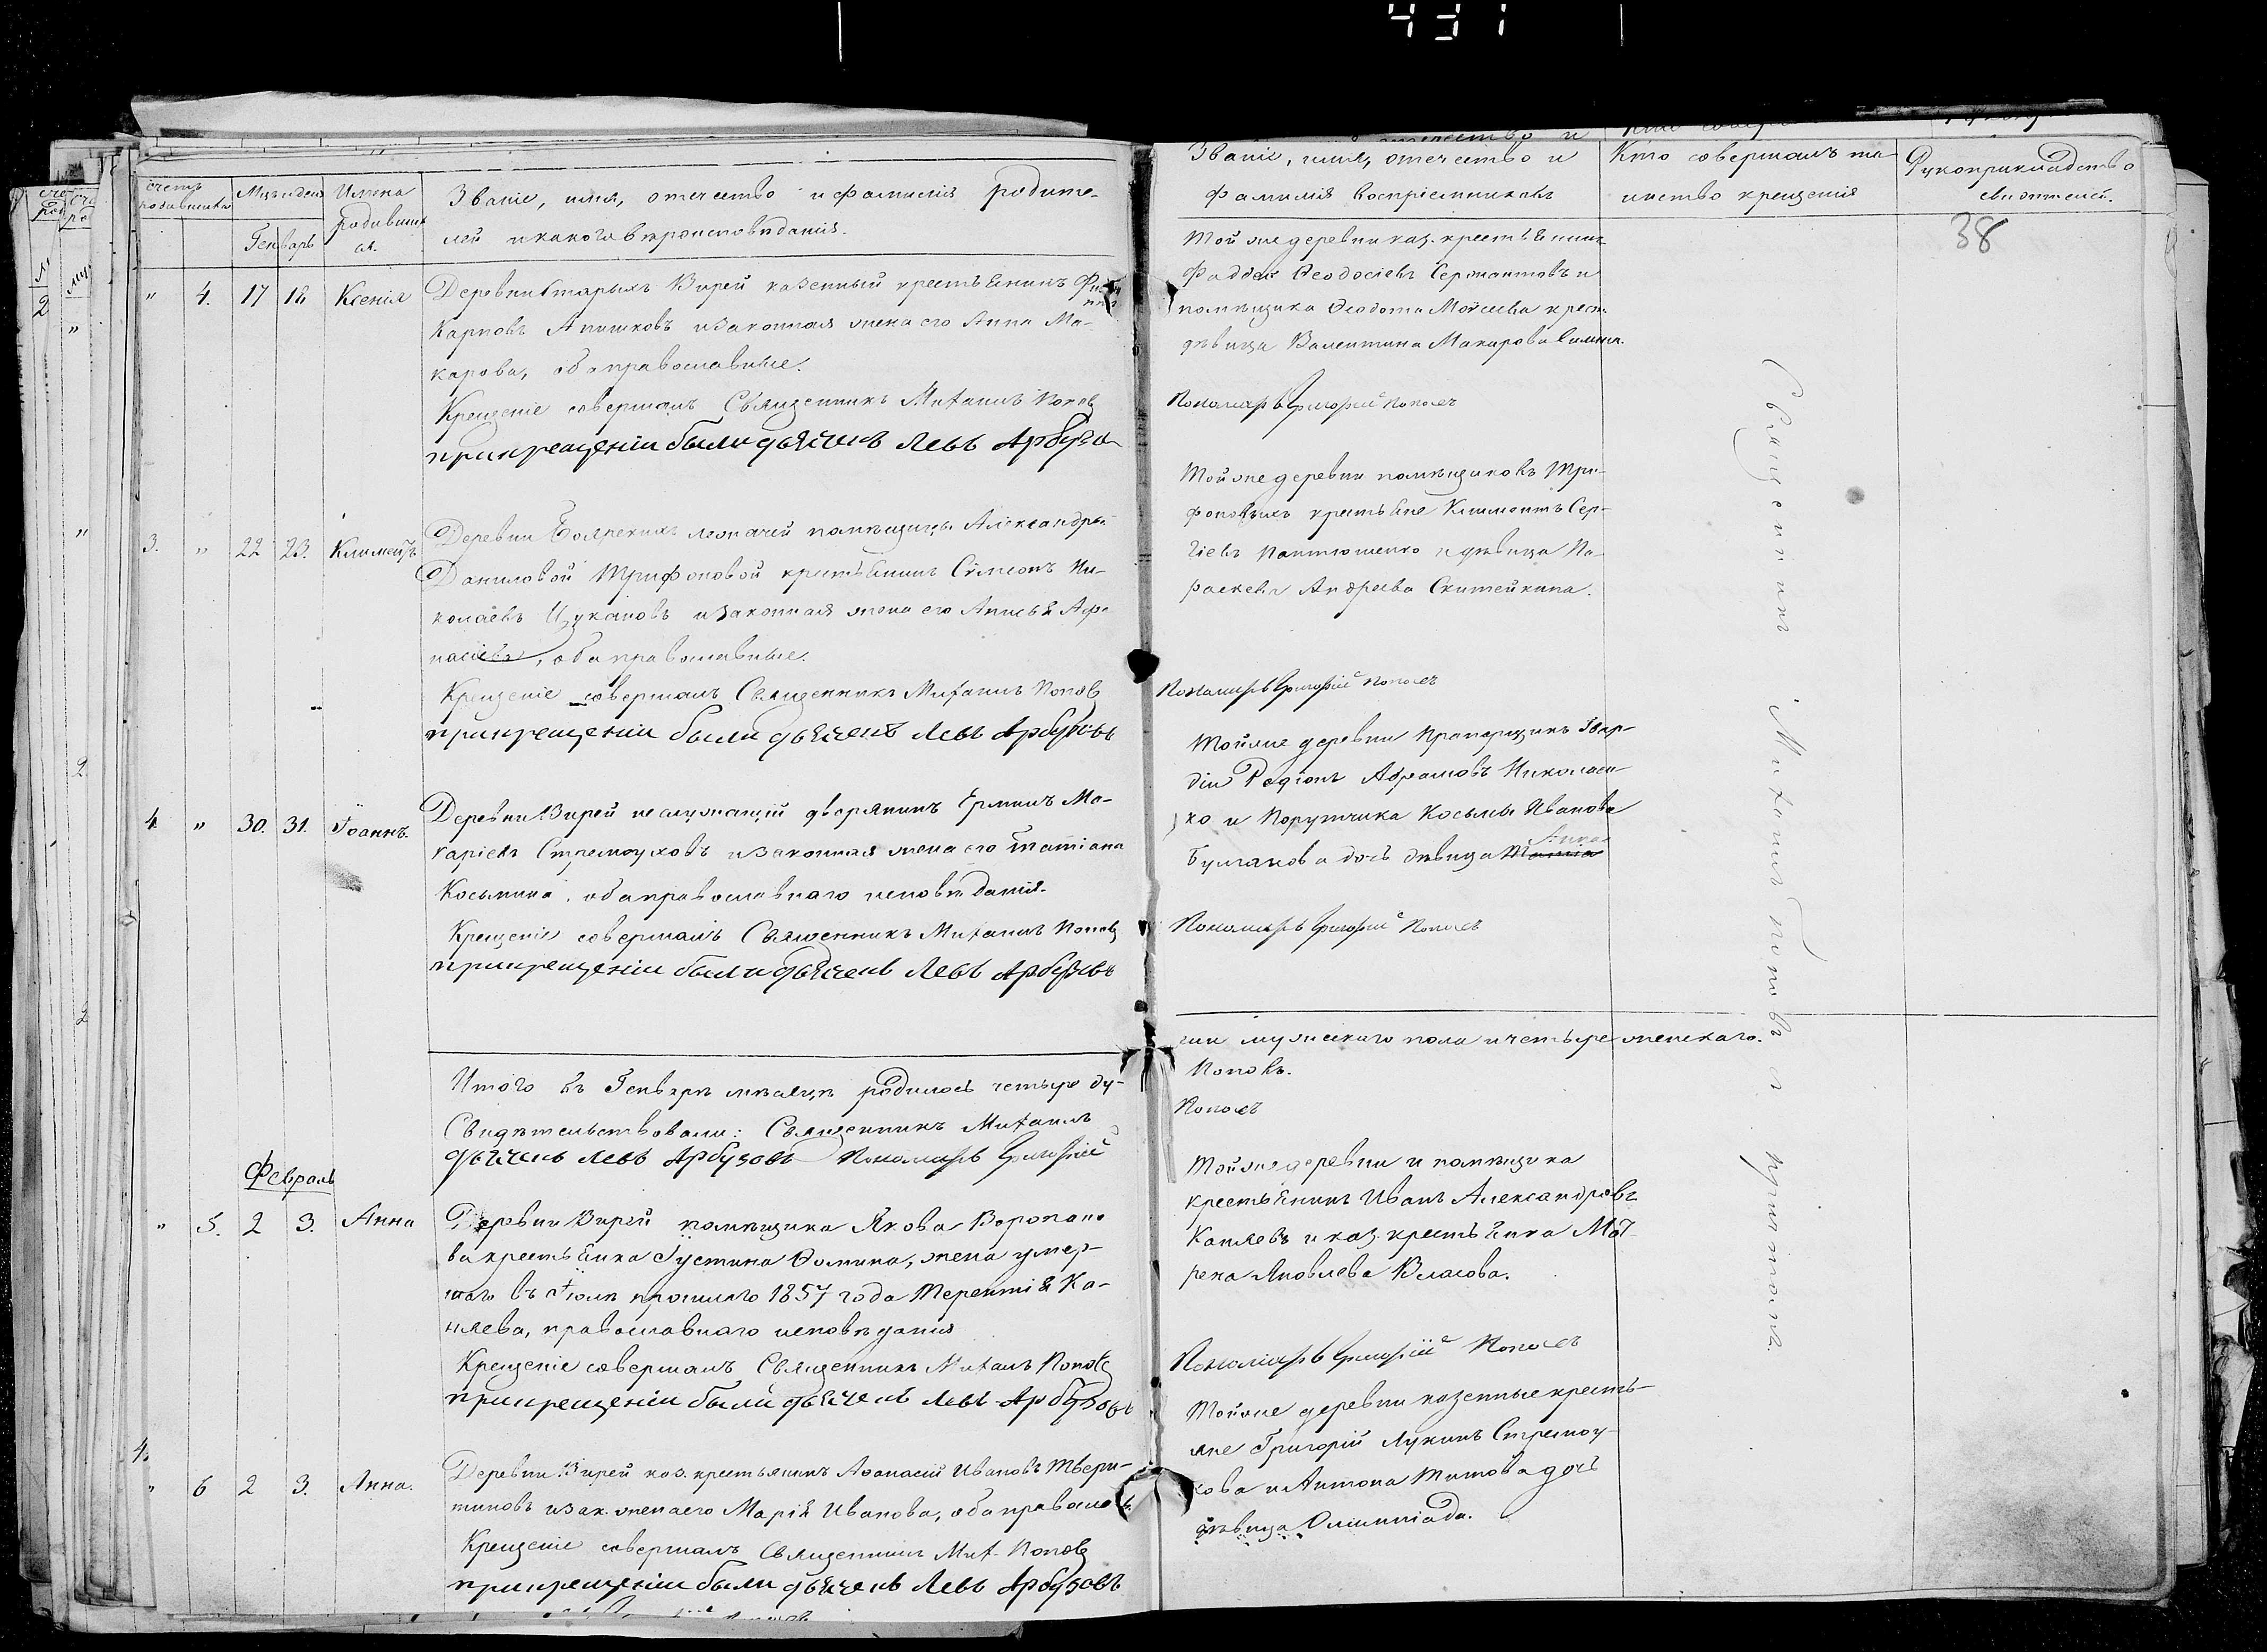 431
счетъ родившихся
Мцъ и день
Имена родившихся.
Званіе, имя, отчество и фамилія родите-
лей и какого вѣроисповѣданія.
Генварь
" 4. 17 18 Ксенія
Деревни Старыхъ Вирей казенный крестьянинъ
Карповъ Апишковъ и законная жена его Анна Ма-
карова, оба православные.
Крещеніе совершалъ Священникъ Михаилъ Поповъ
при крещеніи были дьячекъ Левъ Арбузо
3. " 22 23. Климентъ
Деревни Боярскихъ помѣщицы Александры
Даниловой Трифоновой крестьянинъ Сѵмеонъ Ни-
колаевъ Цукановъ и законная жена его Анисья Афа
насіева, оба православные.
Крещеніе совершалъ Священникъ Михаилъ Поповъ
при крещеніи были дьячекъ Левъ Арбузовъ
4 " 30. 31. Іоаннъ.
Деревни Вирей неслужащій дворянинъ Ермилъ Ма-
каріевъ Стремоуховъ и законная жена его Татіана
Косьмина, оба православнаго исповѣданія.
Крещеніе совершалъ Священникъ Михаилъ Поповъ
при крещеніи были дьячекъ Левъ Арбузовъ
Итого въ Генварѣ мѣсяцѣ родилось четыре ду-
Свидѣтельствовали: Священникъ Михаилъ
дьячекъ Левъ Арбузовъ Пономарь Григорій
Февраль
" 5. 2 3. Анна
Деревни Вирей помѣщика Якова Воропано
ва крестьянка Іустина Ѳомина, жена умер-
шаго въ Іюлѣ прошлаго 1857 года Терентія Ка-
пляева, православнаго исповѣданія
Крещеніе совершалъ Священникъ Михаилъ Поповъ
при крещеніи были дьячекъ Левъ Арбузовъ
4.
" 6 2 3. Анна.
Деревни Вирей каз. крестьянинъ Аѳанасій Ивановъ Твери-
тиновъ и зак. жена его Марія Иванова, оба православ.
Крещеніе совершалъ Священникъ Мих. Поповъ
при крещеніи были дьячекъ Левъ Арбузовъ
Званіе, имя, отчество и
фамилія воспріемниковъ
Кто совершалъ та-
инство крещенія
Рукоприкладство
свидѣтелей.
38
Той же деревни каз. крестьянинъ
Фаддей Ѳеодосіевъ Сержантовъ и
помѣщика Ѳеодота Моисеева крест.
дѣвица Валентина Макарова
Пономарь Григорій Поповъ
Той же деревни помѣщиковъ Три-
фоновыхъ крестьяне Климентъ Сер-
гіевъ Пантюшенко и дѣвица Па-
раскева Андреева Скитейкина.
Пономарь Григорій Поповъ
Той же деревни Прапорщикъ Гвар-
діи Родіонъ Абрамовъ Николаен-
ко и Порутчика Косьмы Иванова
Булгакова дочь дѣвица Анна
Пономарь Григорій Поповъ
ши мужескаго пола и четыре женскаго.
Поповъ.
Поповъ
Той же деревни и помѣщика
крестьянинъ Иванъ Александровъ
Капляевъ и каз. крестьянка Мат
рена Яковлева Власова.
Пономарь Григорій Поповъ
Той же деревни казенные кресть-
яне Григорій Лукинъ Стремоу-
хова и Антона Титова дочь
дѣвица Олимпіада.
Священникъ Михаилъ Поповъ съ причтомъ